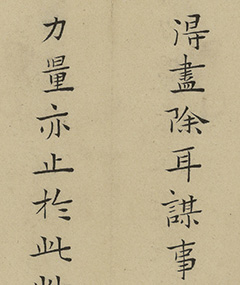 得盡除耳謀事
力量亦止於此